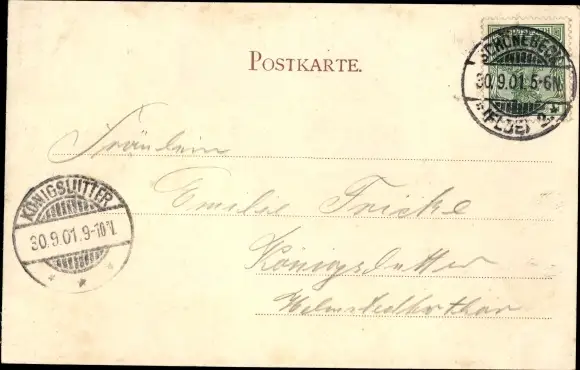 POSTKARTE.
SCHÖNEBECK
30.9.01.5-6N.
*(ELBE) 2*
Fräulein
Emilie Fricke
KÖNIGSLUTTER
30.9.01.9-10N.
Königslutter
Helmstedterthor